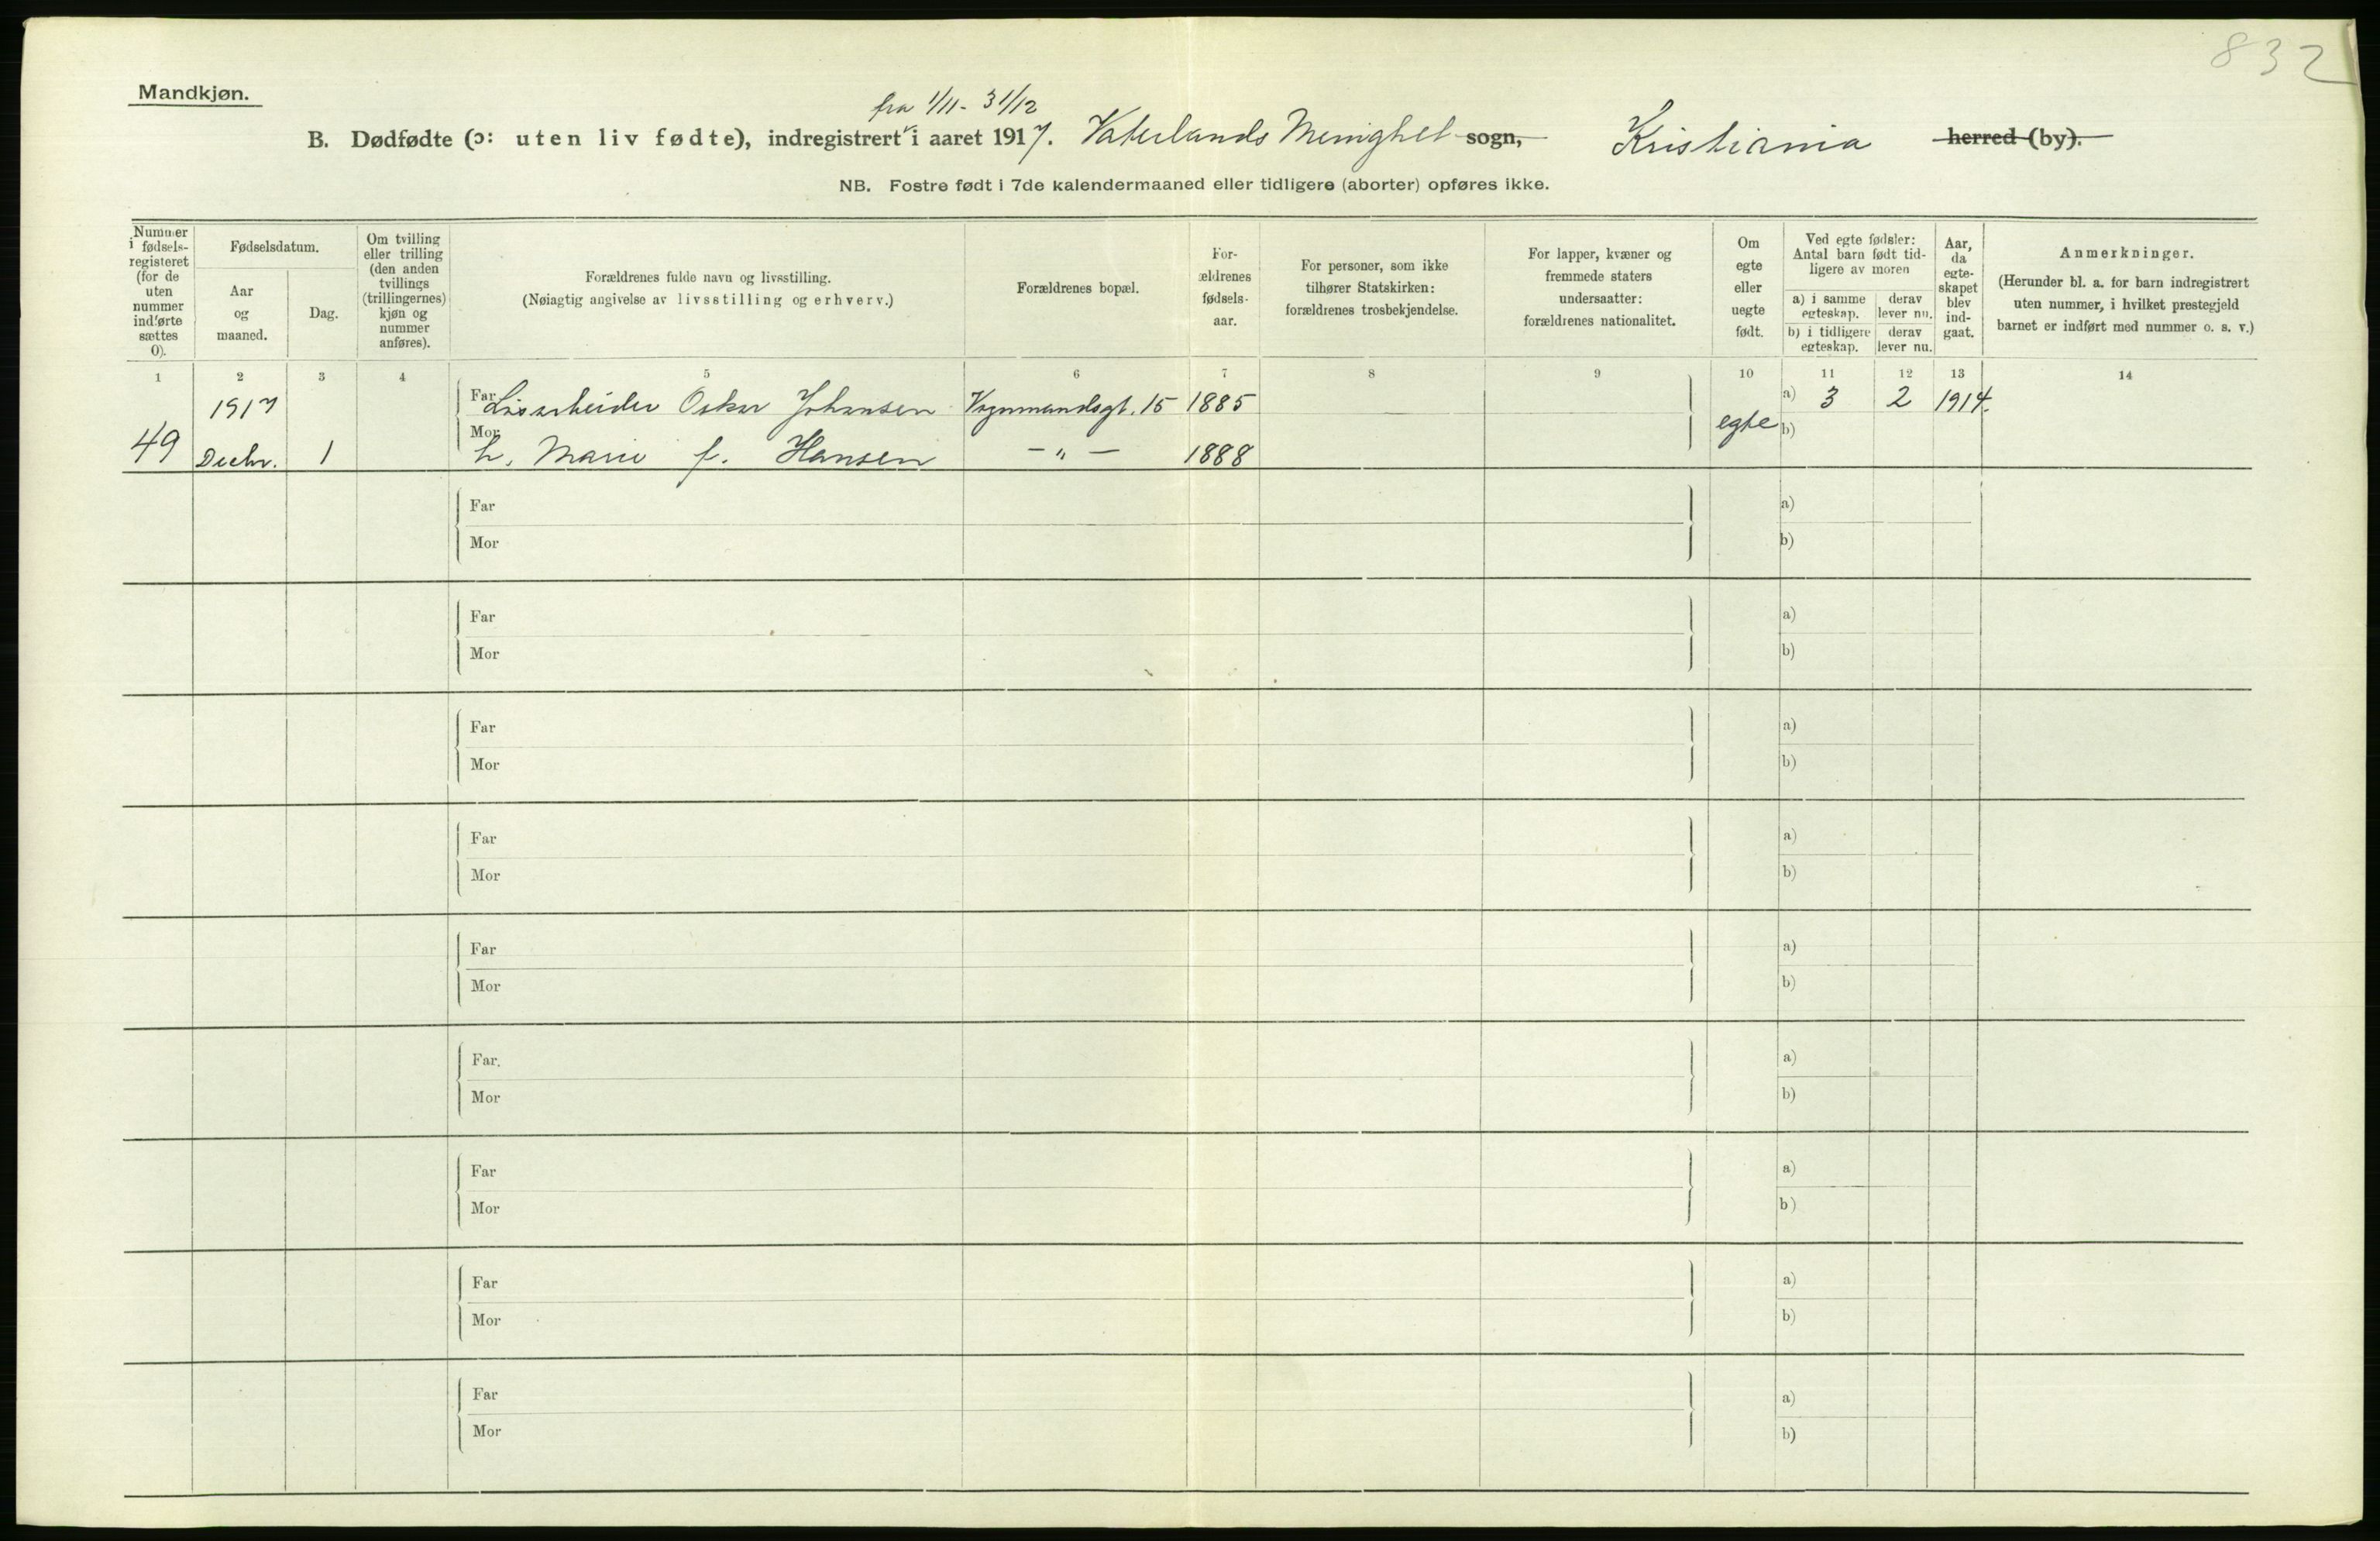 832
Mandkjøn.
fra 1/11 - 31/12
B. Dødfødte (ɔ: uten liv fødte), indregistrert i aaret 1917. Vaterlands Menighet sogn, Kristiania herred (by).
NB. Fostre født i 7de kalendermaaned eller tidligere (aborter) opføres ikke.
Nummer i fødsels-registeret (for de uten nummer indførte sættes 0).
Fødselsdatum.
Aar og maaned.
Dag.
Om tvilling eller trilling (den anden tvillings (trillingernes) kjøn og nummer anføres).
Forældrenes fulde navn og livsstilling.
(Nøiagtig angivelse av livsstilling og erhverv.)
Forældrenes bopæl.
For-ældrenes fødsels-aar.
For personer, som ikke tilhører Statskirken: forældrenes trosbekjendelse.
For lapper, kvæner og fremmede staters undersaatter: forældrenes nationalitet.
Om egte eller uegte født.
Ved egte fødsler: Antal barn født tid-ligere av moren
a) i samme egteskap.
derav lever nu.
b) i tidligere egteskap.
derav lever nu.
Aar, da egte-skapet blev ind-gaat.
Anmerkninger.
(Herunder bl. a. for barn indregistrert uten nummer, i hvilket prestegjeld barnet er indført med nummer o. s. v.)
1 2 3 4 5 6 7 8 9 10 11 12 13 14
1917 Far Løsarbeider Oskar Johansen Vognmandsgt. 15 1885 egte a) 3 2 1914.
49 Decbr. 1 Mor h. Marie f. Hansen - " - 1888 b)
Far a)
Mor b)
Far a)
Mor b)
Far a)
Mor b)
Far a)
Mor b)
Far a)
Mor b)
Far. a)
Mor b)
Far a)
Mor b)
Far a)
Mor b)
Far a)
Mor b)